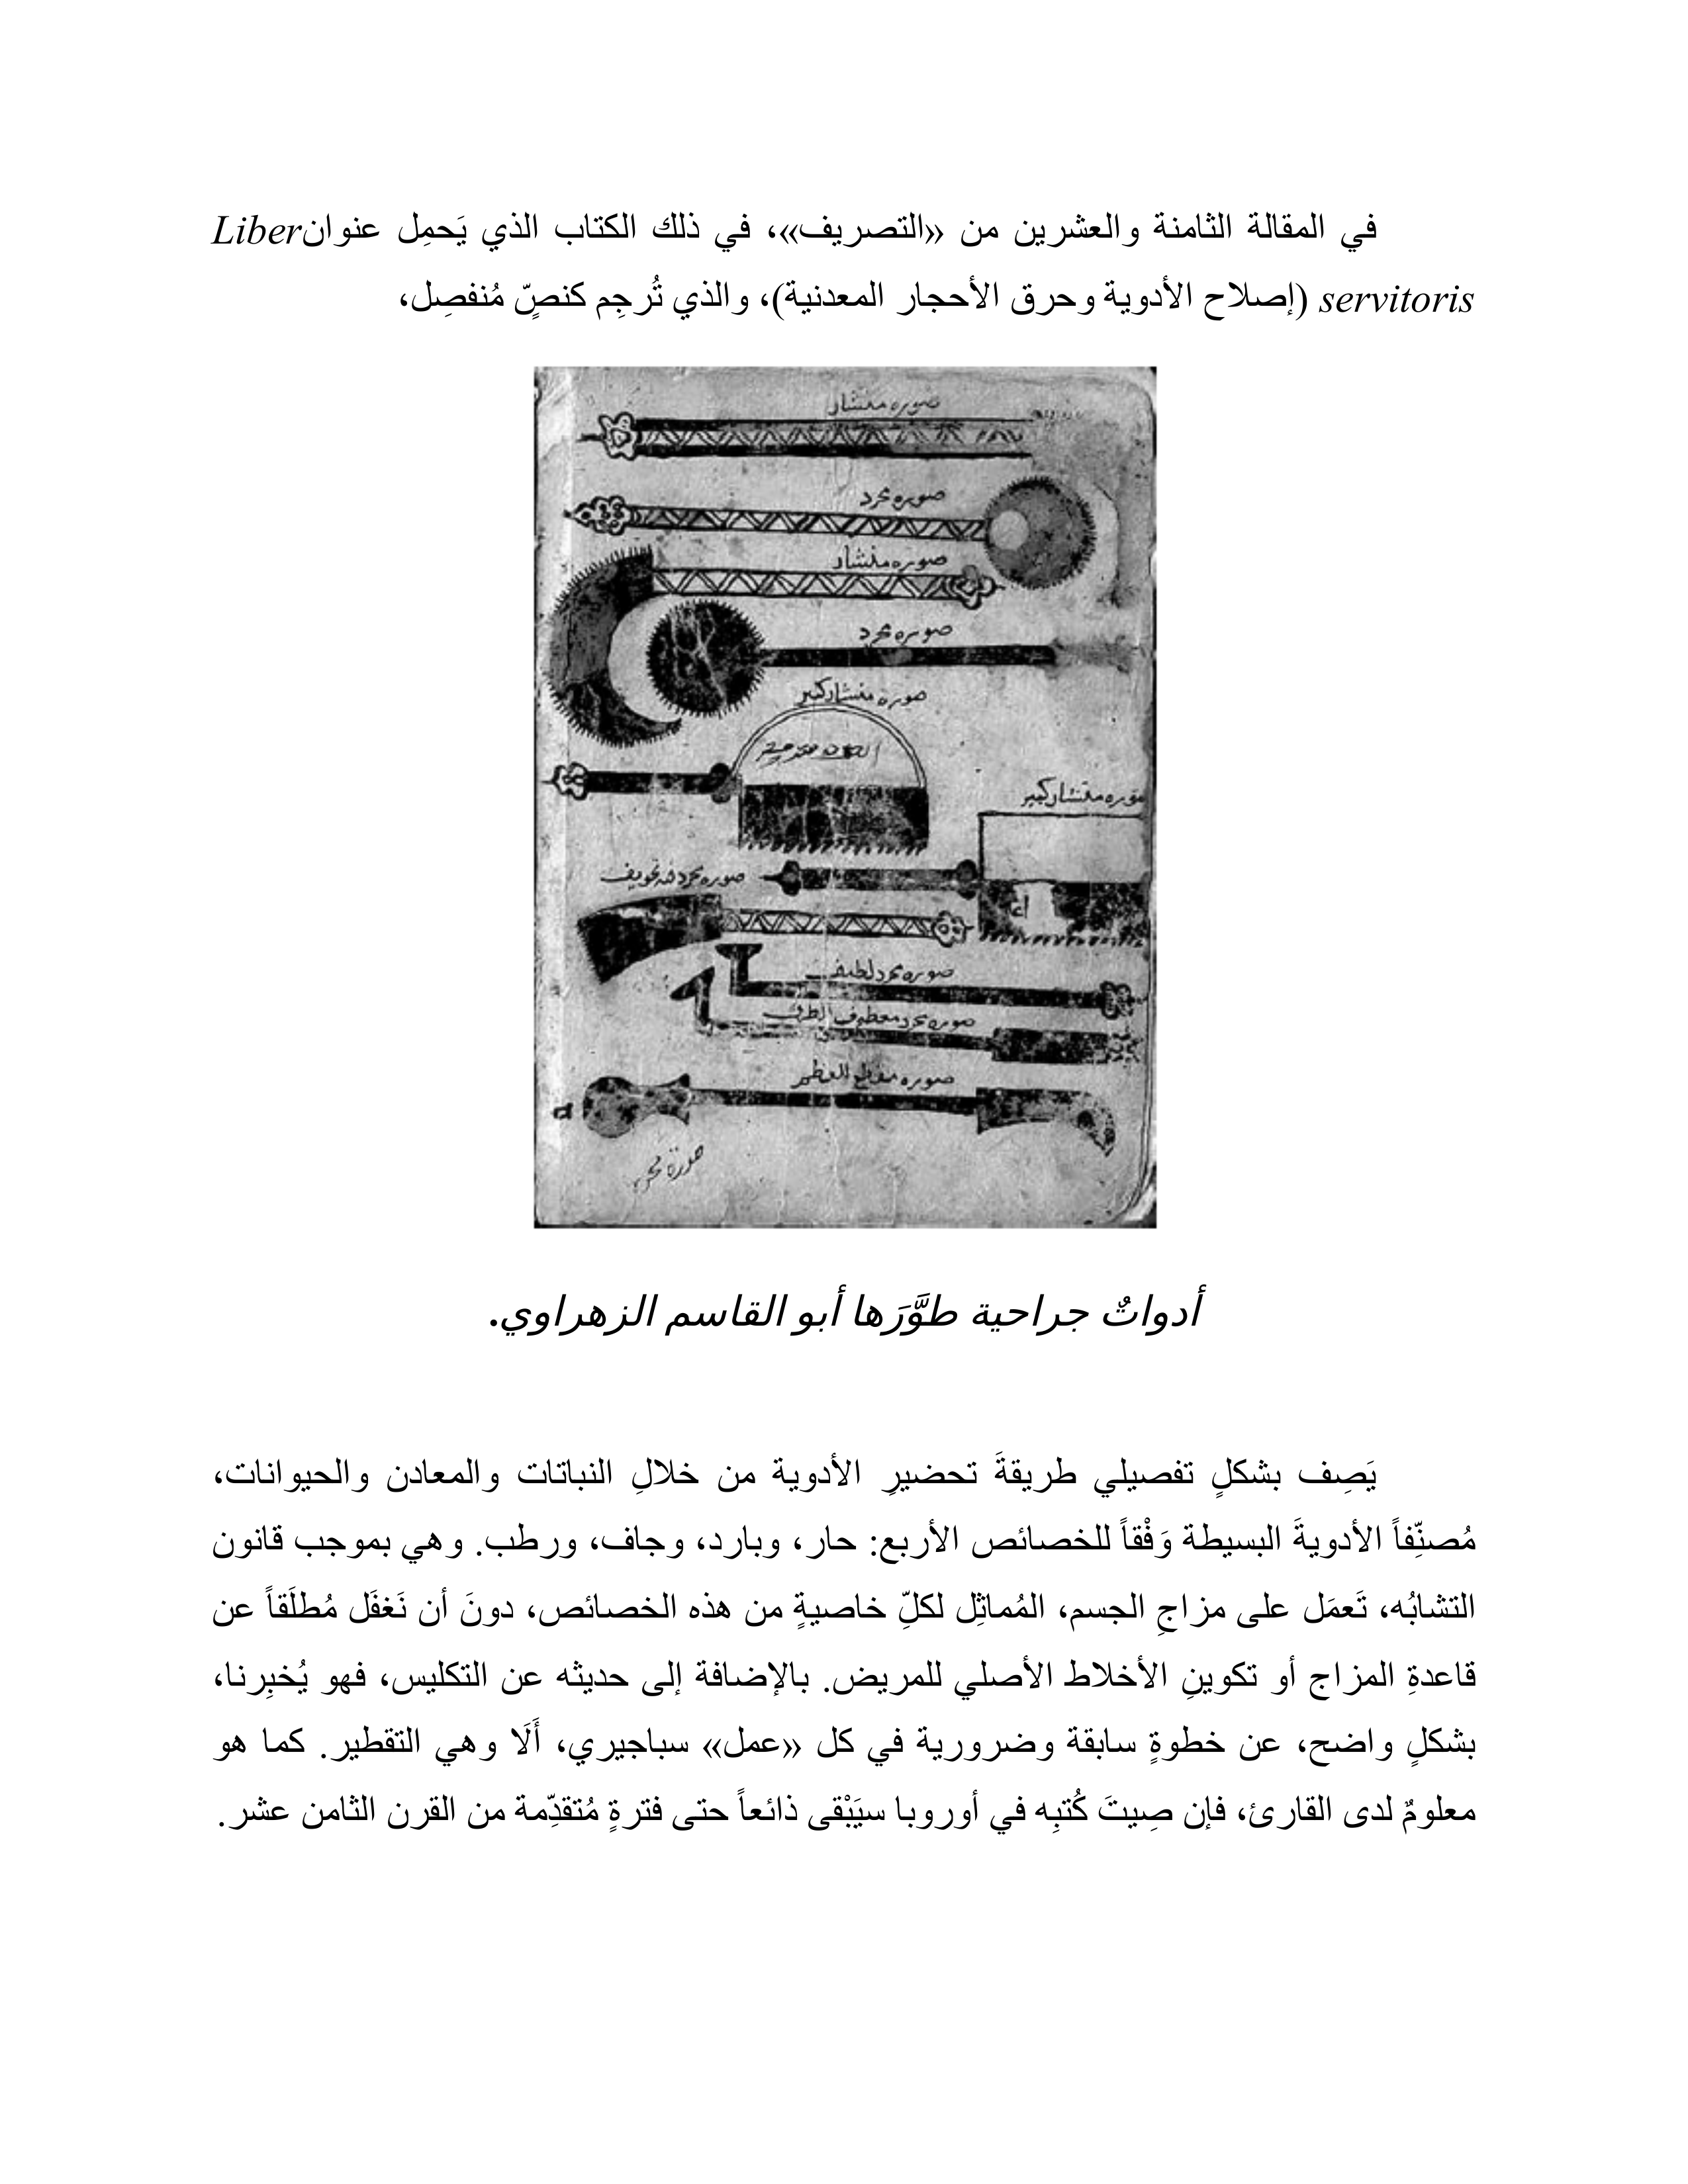 في المقالة الثامنة والعشرين من «التصريف»، في ذلك الكتاب الذي يَحمِل عنوانLiber
servitoris (إصلاح الأدوية وحرق الأحجار المعدنية)، والذي تُرجِم كنصٍّ مُنفصِل،
صوره منشار
صوره مجرد
صوره منشار
صوره مجرد
صورة منشار كبير
صوره منشار كبير
صوره مجرد فيه تجويف
صوره مجرد لطيف
صوره مجرد معطوف الطرف
صوره مقطع للعظم
أدواتٌ جراحية طوَّرَها أبو القاسم الزهراوي.
يَصِف بشكلٍ تفصيلي طريقةَ تحضيرِ الأدوية من خلالِ النباتات والمعادن والحيوانات،
مُصنِّفاً الأدويةَ البسيطة وَفْقاً للخصائص الأربع: حار، وبارد، وجاف، ورطب. وهي بموجب قانون
التشابُه، تَعمَل على مزاجِ الجسم، المُماثِل لكلِّ خاصيةٍ من هذه الخصائص، دونَ أن نَغفَل مُطلَقاً عن
قاعدةِ المزاج أو تكوينِ الأخلاط الأصلي للمريض. بالإضافة إلى حديثه عن التكليس، فهو يُخبِرنا،
بشكلٍ واضح، عن خطوةٍ سابقة وضرورية في كل «عمل» سباجيري، أَلَا وهي التقطير. كما هو
معلومٌ لدى القارئ، فإن صِيتَ كُتبِه في أوروبا سيَبْقى ذائعاً حتى فترةٍ مُتقدِّمة من القرن الثامن عشر.